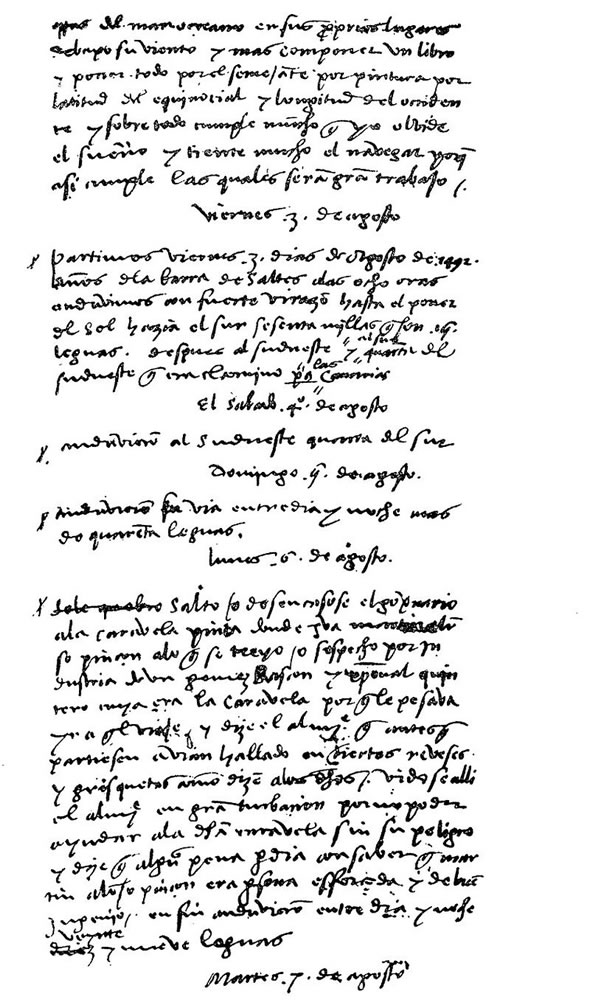 del mar oceano en sus proprios lugares
debaxo su viento y mas componer un libro
y poner todo por el semejãte por pintura por
latitud del equinocial y longitud del occiden
te y sobre todo cumple mucho q̃ yo olvide
el sueño y tiente mucho el navegar porq̃
asi cumple las quales serã grã trabajo /.
viernes .3. de agosto
partimos viernes .3. dias de agosto de .1492.
años dla barra de Saltes a las ocho oras
anduvimos con fuerte virazõ hasta el poner
del sol hazia el sur sesenta millas q̃ son .15.
leguas. despues al sudueste y al sur quarta del
sudueste q̃ era el camino pa las Canarias
El sabado .4º. de agosto
anduvierõ al sudueste quarta del sur
Domingo .5. de agosto.
anduvierõ su via entre dia y noche mas
de quarẽta leguas.
lunes .6. de agosto.
salto o desencasose el governario
a la caravela pinta donde yva martin alõ
so pinçon a lo q̃ se creyo o sospecho por in
dustria de un gomez Rascon y xpoval quin
tero cuya era la caravela porq̃ le pesava
yr a q̃l viaje / y dize el almirãte q̃ antes q̃
partiesen avian hallado en ciertos reveses
y grisquetas como dizẽ a los dhos /. vidose alli
el almirãte en grã turbacion por no poder
ayudar a la dha caravela sin su peligro
y dize q̃ algũa pena perdia con saber q̃ mar
tin alõso pinçon era persona esforçada y de buẽ
ingenio / en fin anduvierõ entre dia y noche
veynte
y nueve leguas
Martes .7. de agosto